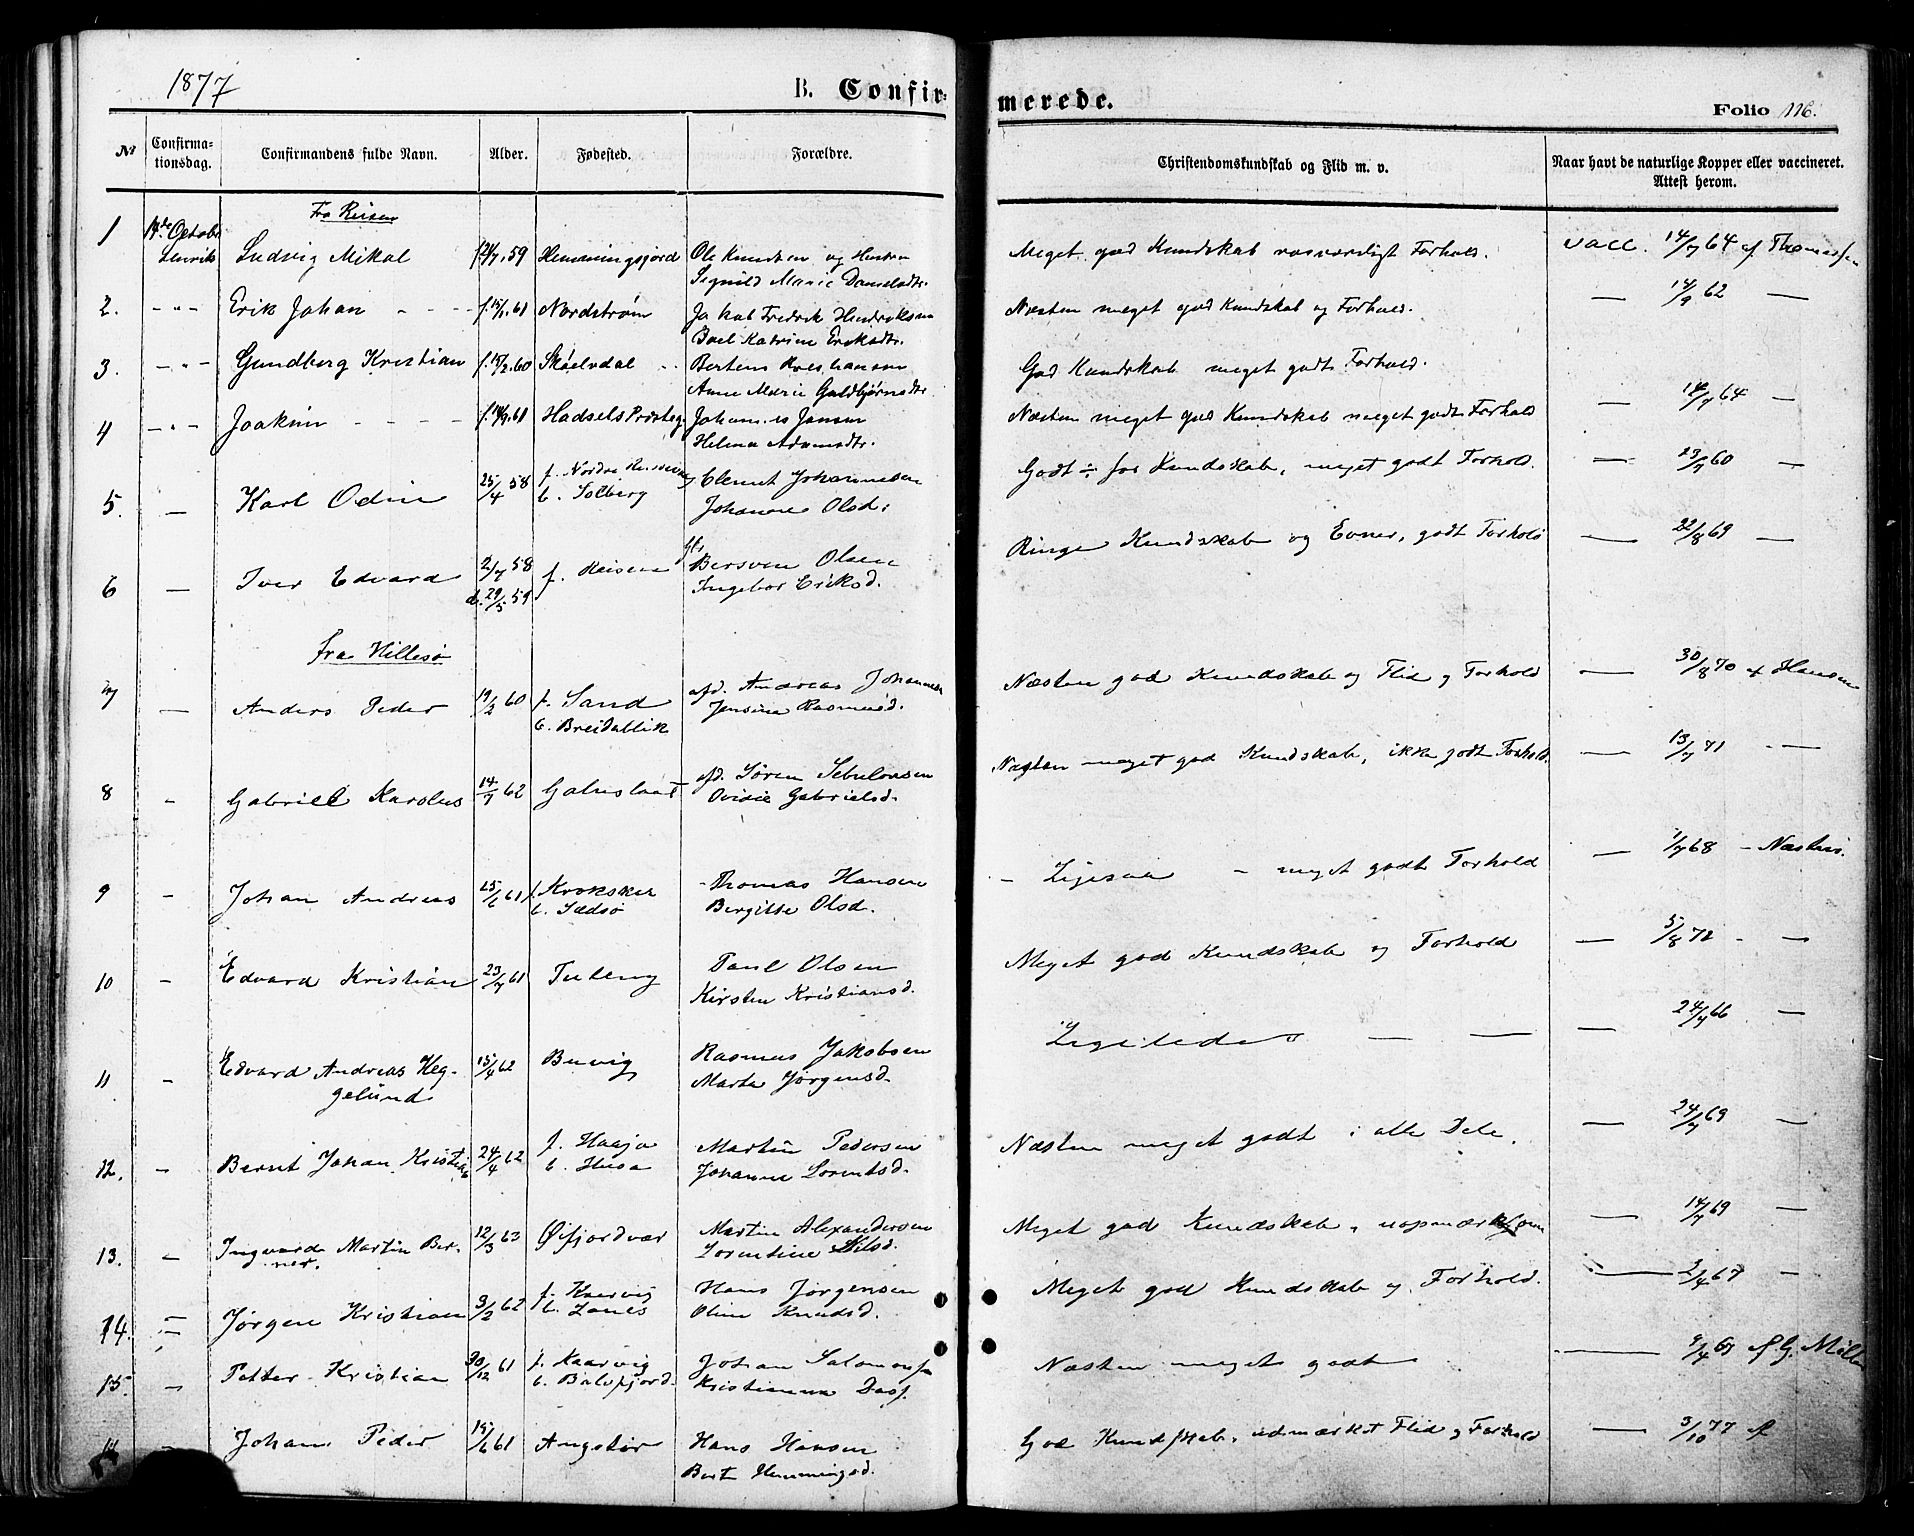 1877
B. Confirmerede.
Folio 116.
No
Confirmationsdag.
Confirmandens fulde Navn.
Alder.
Fødested.
Forældre.
Christendomskundskab og Flid m. v.
Naar havt de naturlige Kopper eller vaccineret. Attest herom.
Fra Reisen
1 14de Octobr Lenvik Ludvig Mikal 59 Hemmingsjord Ole Knudsen og Hustru
Signild Marie Danielsdtr.
Meget god Kundskab rosværdigt Forhold. vacc. 14/7 64 af Thomessen
2. - " - Erik Johan - - - f. 15/1. 61 Nordstrøm Jakob Fredrik Hendriksen
Boel Katrine Eriksdtr.
Næsten meget god Kundskab og Forhold. — 14/9 62 —
3. - " - Gundberg Kristian f. 15/2. 60 Skøelvdal Bertens
Anne Marie Guldbjørnsdtr.
God Kundskab meget godt Forhold.
4 - " - Joakim - - - - 61 Hadsels Præsteg. Johannes Jansen
Helena Adamsdtr.
Næsten meget god Kundskab meget godt Forhold — 14/7 64 —
5. — Karl Odin 25/4 58 f. Nordre
b. Solberg Clemet Johannesen
Johanne Olsd.
Godt ÷ for Kundskab, meget godt Forhold. — 23/7 60 —
6 — Iver Edvard 2/7 58
d. 29/5 59 f. Reisen Bersven Olsen
Ingebor Eriksd.
Ringe Kundskab og Evner, godt Forhold — 22/8 69 —
fra Hillesø
7 — Anders Peder 19/2 60 f. Sand
b. Breidablik afd. Andreas Johannes
Jensine Rasmusd.
Næsten god Kundskab og Flid og Forhold — 30/8 70 af Hansen
8 - Gabriel Karolus 14/7 62 afd. Søren Sebulonsen
Ovidie Gabrielsd.
Næsten meget god Kundskab, ikke godt Forhold. — 13/7 71 - —
9 - Johan Andreas 25/6 61 f. Krokskar
b. Sædsø Thomas Hansen
Bergitte Olsd.
- Ligesaa - meget godt Forhold — 1/7 68 -
10 - Edvard Kristian 23/7 61 Tuleng Paul Olsen
Kirsten Kristiansd.
Meget god Kundskab og Forhold — 5/8 72 - —
11 - Edvard Andreas Heg-
gelund 15/4 62 Buvig Rasmus Jakobsen
Marta Jørgensd.
Ligeledes — — — 24/7 66 —
12. - Bernt Johan Kristian 24/4 62 f. Haaja
b. Husø Martin Pedersen
Johanne Lorentsd.
Næsten meget godt i alle Dele. — 24/7 69 —
13. - Ingvard Martin Ber-
ner. 12/3 63 Øifjordvær Martin Alexandersen
Lorentine Nilsd.
Meget god Kundskab, uopmærksom — 14/7 69 —
14. Jørgen Kristian 3/2 62 f. Kaarvig
b. Lanes Hans Jørgensen
Oline Knudsd.
Meget god Kundskab og Forhold. — 2/4 67 —
15. - Petter Kristian 30/12 61 f. Kaarvig
b. Balsfjord. Johan Salomons
Kristianna
Næsten meget godt — 9/4 67 af G. Møller
Johan Peder 19/6 61 Angstør Hans Hansen
Berit Hemmingsd.
God Kundskab, udmærket Flid og Forhold — 3/10 77 af